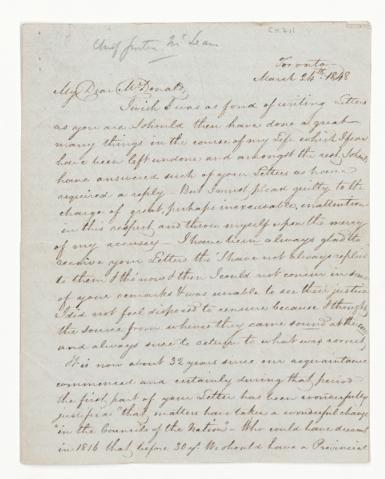 Chief Justice McLean
Toronto
March 24th 1848
My Dear McDonald,
I wish I was as fond of writing Letters
as you are I should then have done a great
many things in the course of my Life which I fear
have been left undone and amongst the rest I should
have answered such of your Letters as have
required a reply But I must plead guilty to the
charge of great, perhaps inexcusable, inattention
in this respect, and throw myself upon the mercy
of my accuser I have been always glad to
receive your Letters tho' I have not always replied
to them & tho' now & then I could not concur in some
of your remarks & was unable to see their justice
I did not feel disposed to censure because I thought
the source from whence they came sound at the core
and always sure to return to what was correct
It is now about 32 years since our acquaintance
commenced and certainly during that period
the first part of your Letter has been wonderfully
justified "that matters have taken a wonderful change
"in the Councils of the Nation" Who could have dreamt
in 1816 that before 30 yrs We should have a Provincial